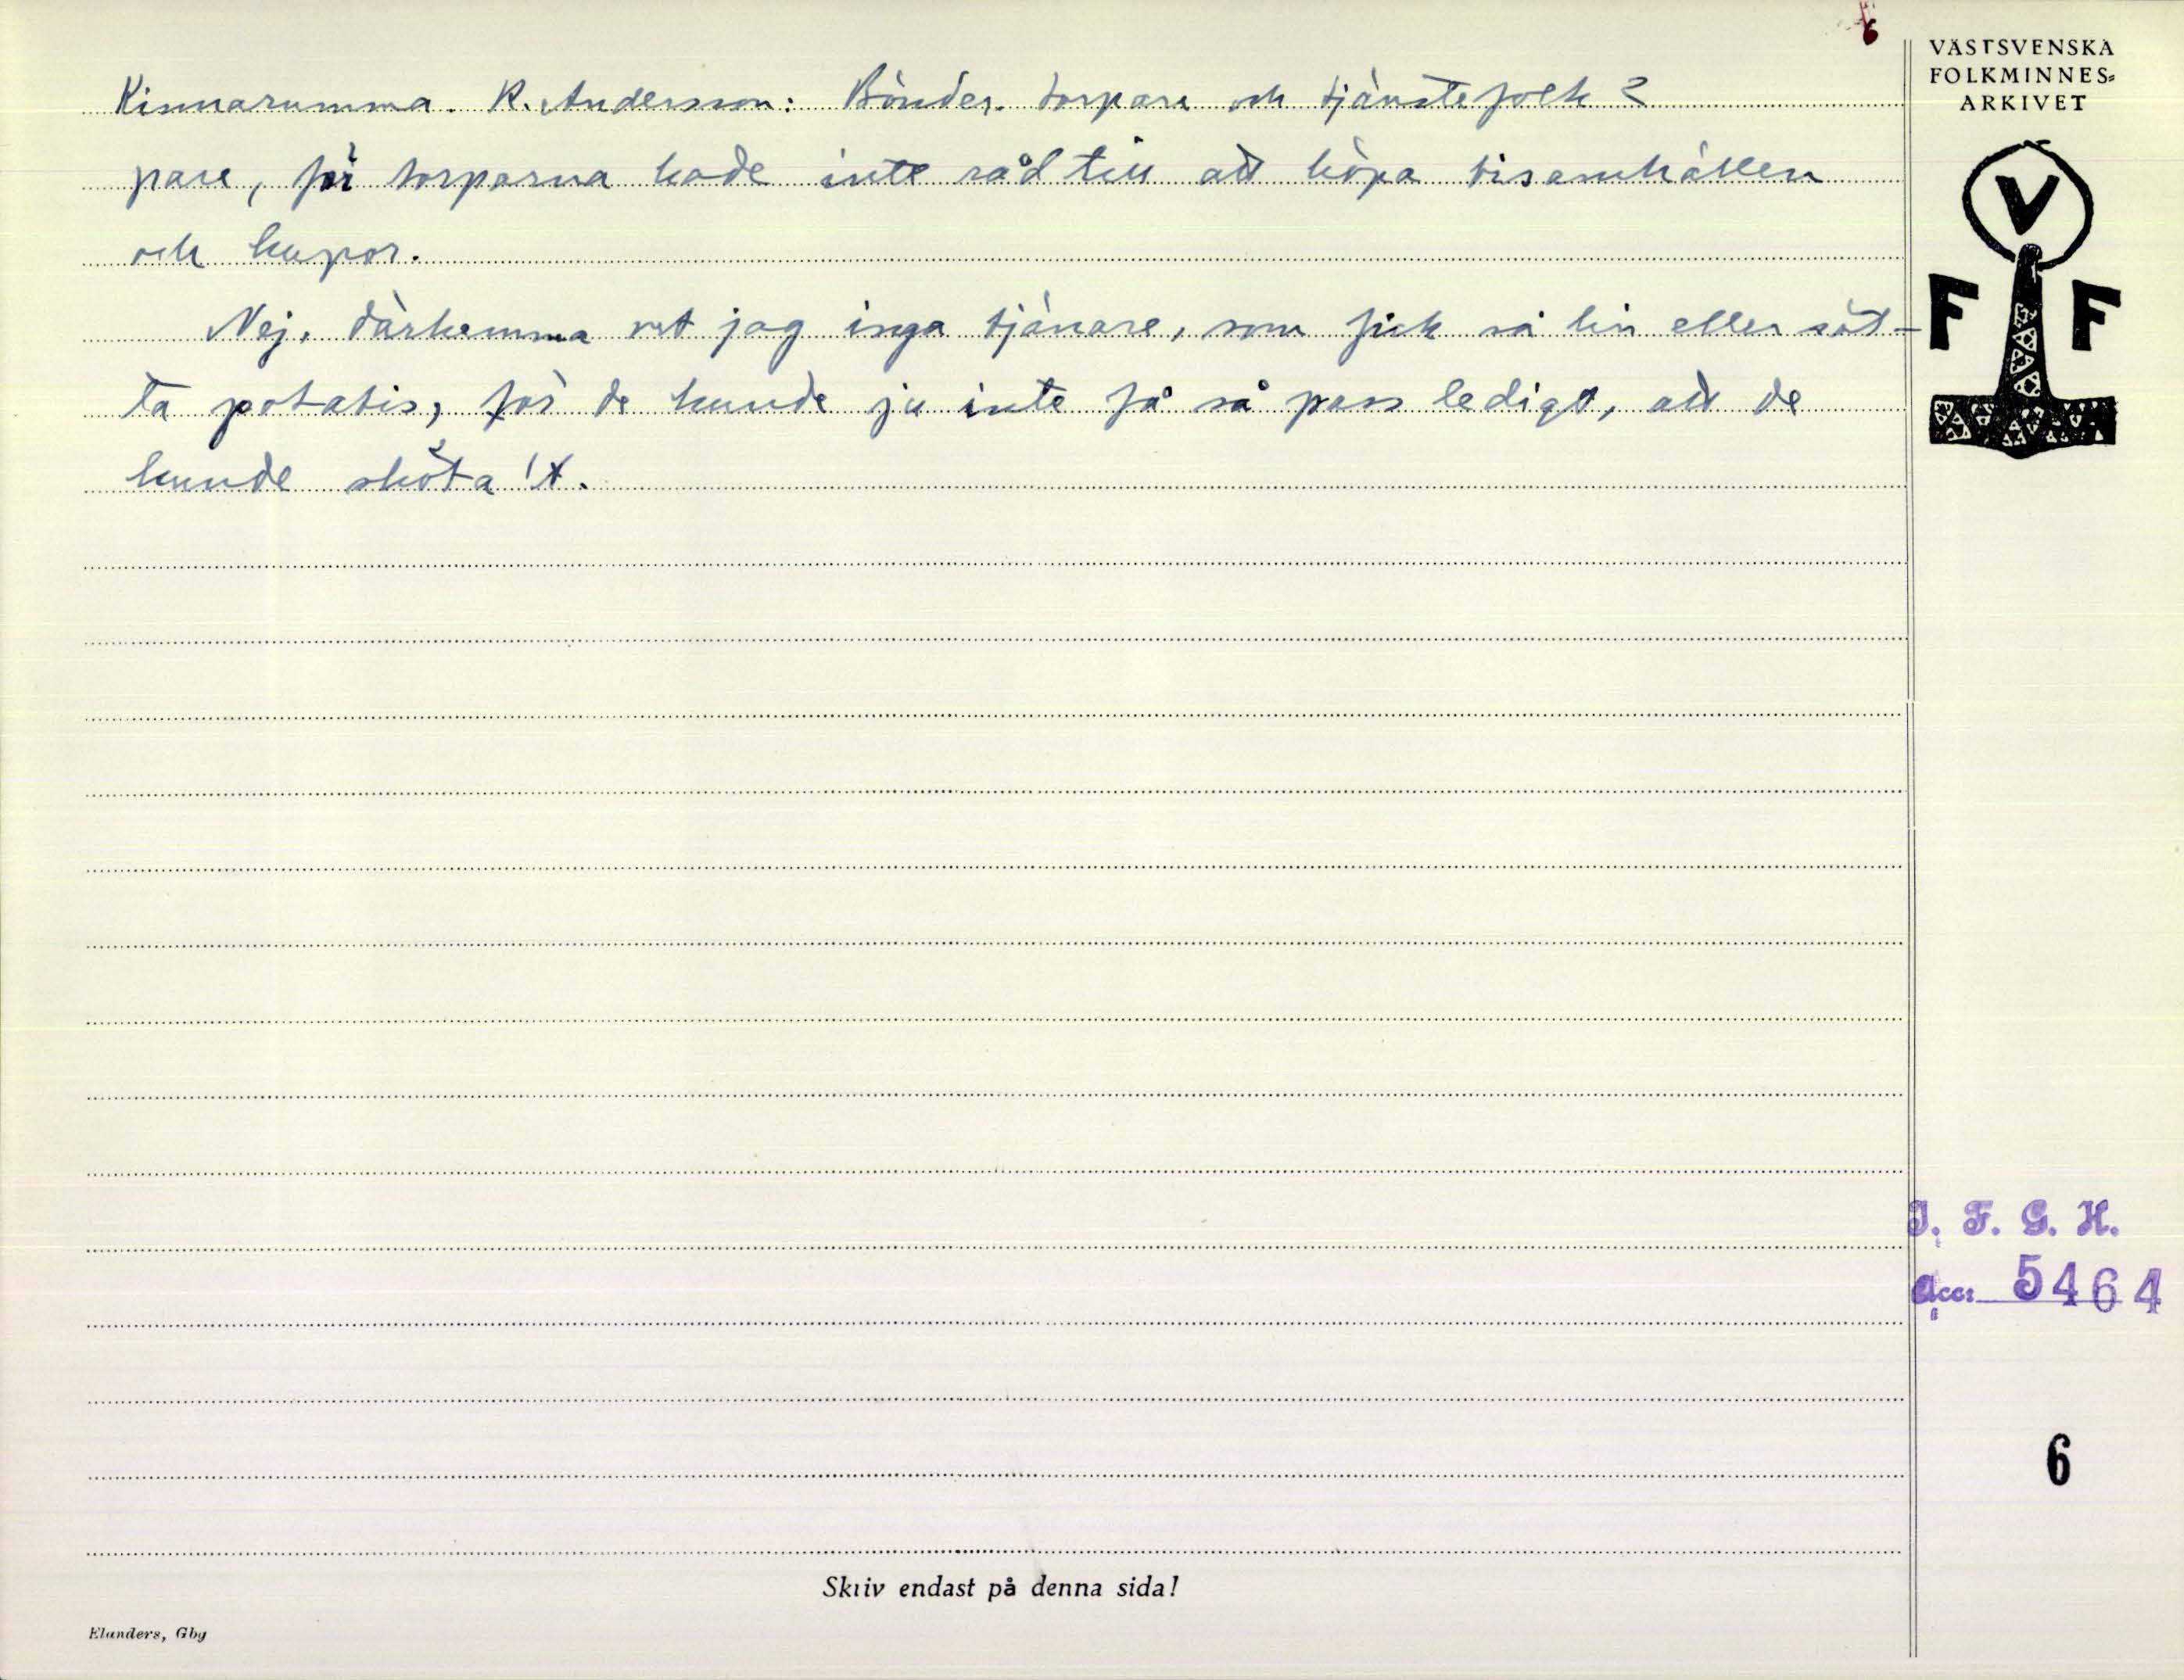 6
Kinnarumma. R. Andersson: Bönder. torpare och tjänstefolk 2
pare, för torparna hade inte råd till att köpa bisamhällen
och kupor.
Nej, därhemma vet jag inga tjänare, som fick så lin eller sät-
ta potatis, för de kunde ju inte få så pass ledigt, att de
kunde sköta 't.
VÄSTSVENSKA
FOLKMINNES-
ARKIVET
V
F F
I. F. G. H.
Acc: 5464
6
Skriv endast på denna sida!
Elanders, Gbg